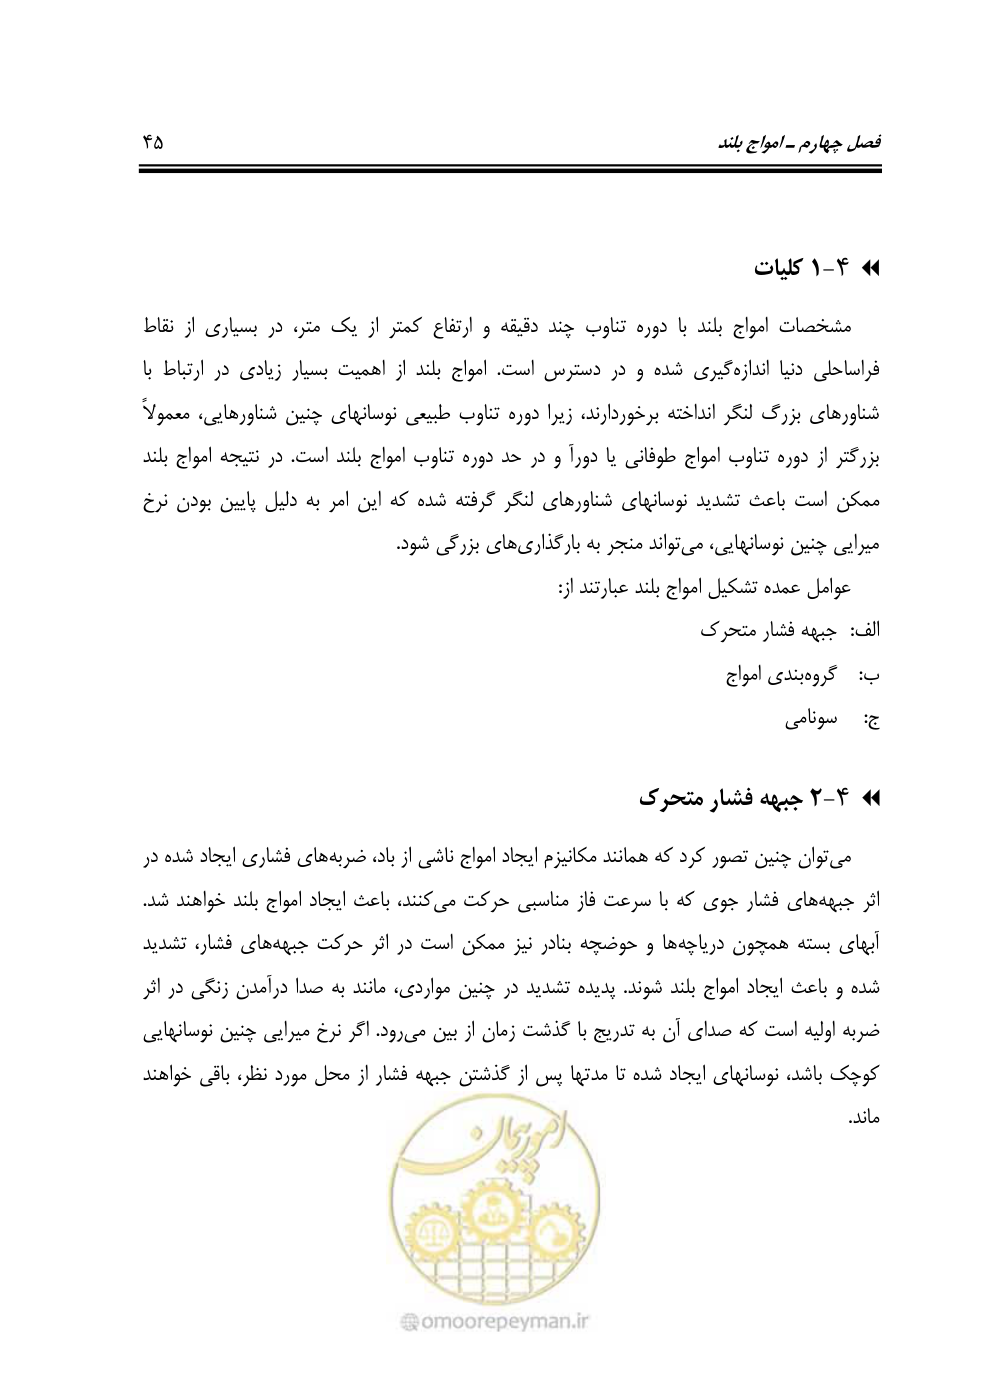 فصل چهارم ـ امواج بلند ۴۵
۴-۱ کلیات
مشخصات امواج بلند با دوره تناوب چند دقیقه و ارتفاع کمتر از یک متر، در بسیاری از نقاط
فراساحلی دنیا اندازه‌گیری شده و در دسترس است. امواج بلند از اهمیت بسیار زیادی در ارتباط با
شناورهای بزرگ لنگر انداخته برخوردارند، زیرا دوره تناوب طبیعی نوسانهای چنین شناورهایی، معمولاً
بزرگتر از دوره تناوب امواج طوفانی یا دورآ و در حد دوره تناوب امواج بلند است. در نتیجه امواج بلند
ممکن است باعث تشدید نوسانهای شناورهای لنگر گرفته شده که این امر به دلیل پایین بودن نرخ
میرایی چنین نوسانهایی، می‌تواند منجر به بارگذاری‌های بزرگی شود.
عوامل عمده تشکیل امواج بلند عبارتند از:
الف: جبهه فشار متحرک
ب: گروه‌بندی امواج
ج: سونامی
۴-۲ جبهه فشار متحرک
می‌توان چنین تصور کرد که همانند مکانیزم ایجاد امواج ناشی از باد، ضربه‌های فشاری ایجاد شده در
اثر جبهه‌های فشار جوی که با سرعت فاز مناسبی حرکت می‌کنند، باعث ایجاد امواج بلند خواهند شد.
آبهای بسته همچون دریاچه‌ها و حوضچه بنادر نیز ممکن است در اثر حرکت جبهه‌های فشار، تشدید
شده و باعث ایجاد امواج بلند شوند. پدیده تشدید در چنین مواردی، مانند به صدا درآمدن زنگی در اثر
ضربه اولیه است که صدای آن به تدریج با گذشت زمان از بین می‌رود. اگر نرخ میرایی چنین نوسانهایی
کوچک باشد، نوسانهای ایجاد شده تا مدتها پس از گذشتن جبهه فشار از محل مورد نظر، باقی خواهند
ماند.
امور پیمان
@omoorepeyman.ir